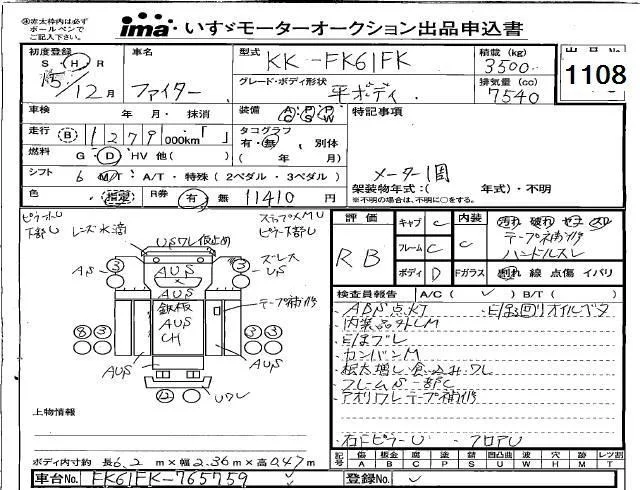 ※赤太枠内は必ず
ボールペンで
ご記入下さい。
ima いすゞモーターオークション出品申込書
初度登録 S Ⓗ R 15/12月
車名 ファイター
型式 KK-FK61FK
グレード・ボディ形状 平ボディ
積載(kg) 3500
排気量(cc) 7540
1108
車検 年 月・抹消
装備
特記事項
走行 Ⓑ 1279 000km「 」
タコグラフ 有・無、別体
( 年 月)
燃料 G Ⓓ HV 他( )
シフト 6 M/T A/T・特殊(2ペダル・3ペダル)
メーター1圏
架装物年式:( 年式)・不明
※不明の場合は、不明に○をする。
色 指定 R券 有 無 11410 円
評価 RB
キャブ C
フレーム C
ボディ D
内装 C
Fガラス
汚れ 破れ
テープ補修
ハンドルスレ
割れ 線 点傷 イバリ
ピラーU
下部U
レンズ水滴
ステップスMU
ピラー下部U
USワレ 仮止め
③ ③
AS
AUS
AUS
鉄板
AUS
CH
スーレス
US
テープ補修
⑧ ③ ③
AUS
AUS
Uワレ
検査員報告 A/C( ✓ ) B/T( )
・ABS点灯
・内装品外しM
・E/gブレ
・カンバンM
・根太増し食込み・ワレ
・フレームS一部C
・アオリワレテープ補修
・右ドピラーU ・フロアU
上物情報
ボディ内寸約 長6.2m×幅2.36m×高0.47m
記号 傷A 板金B 腐C 塗P 錆S 凹凸曲U 波W 穴H 跡M レツ割T
車台No. FK61FK-765759
登録No.